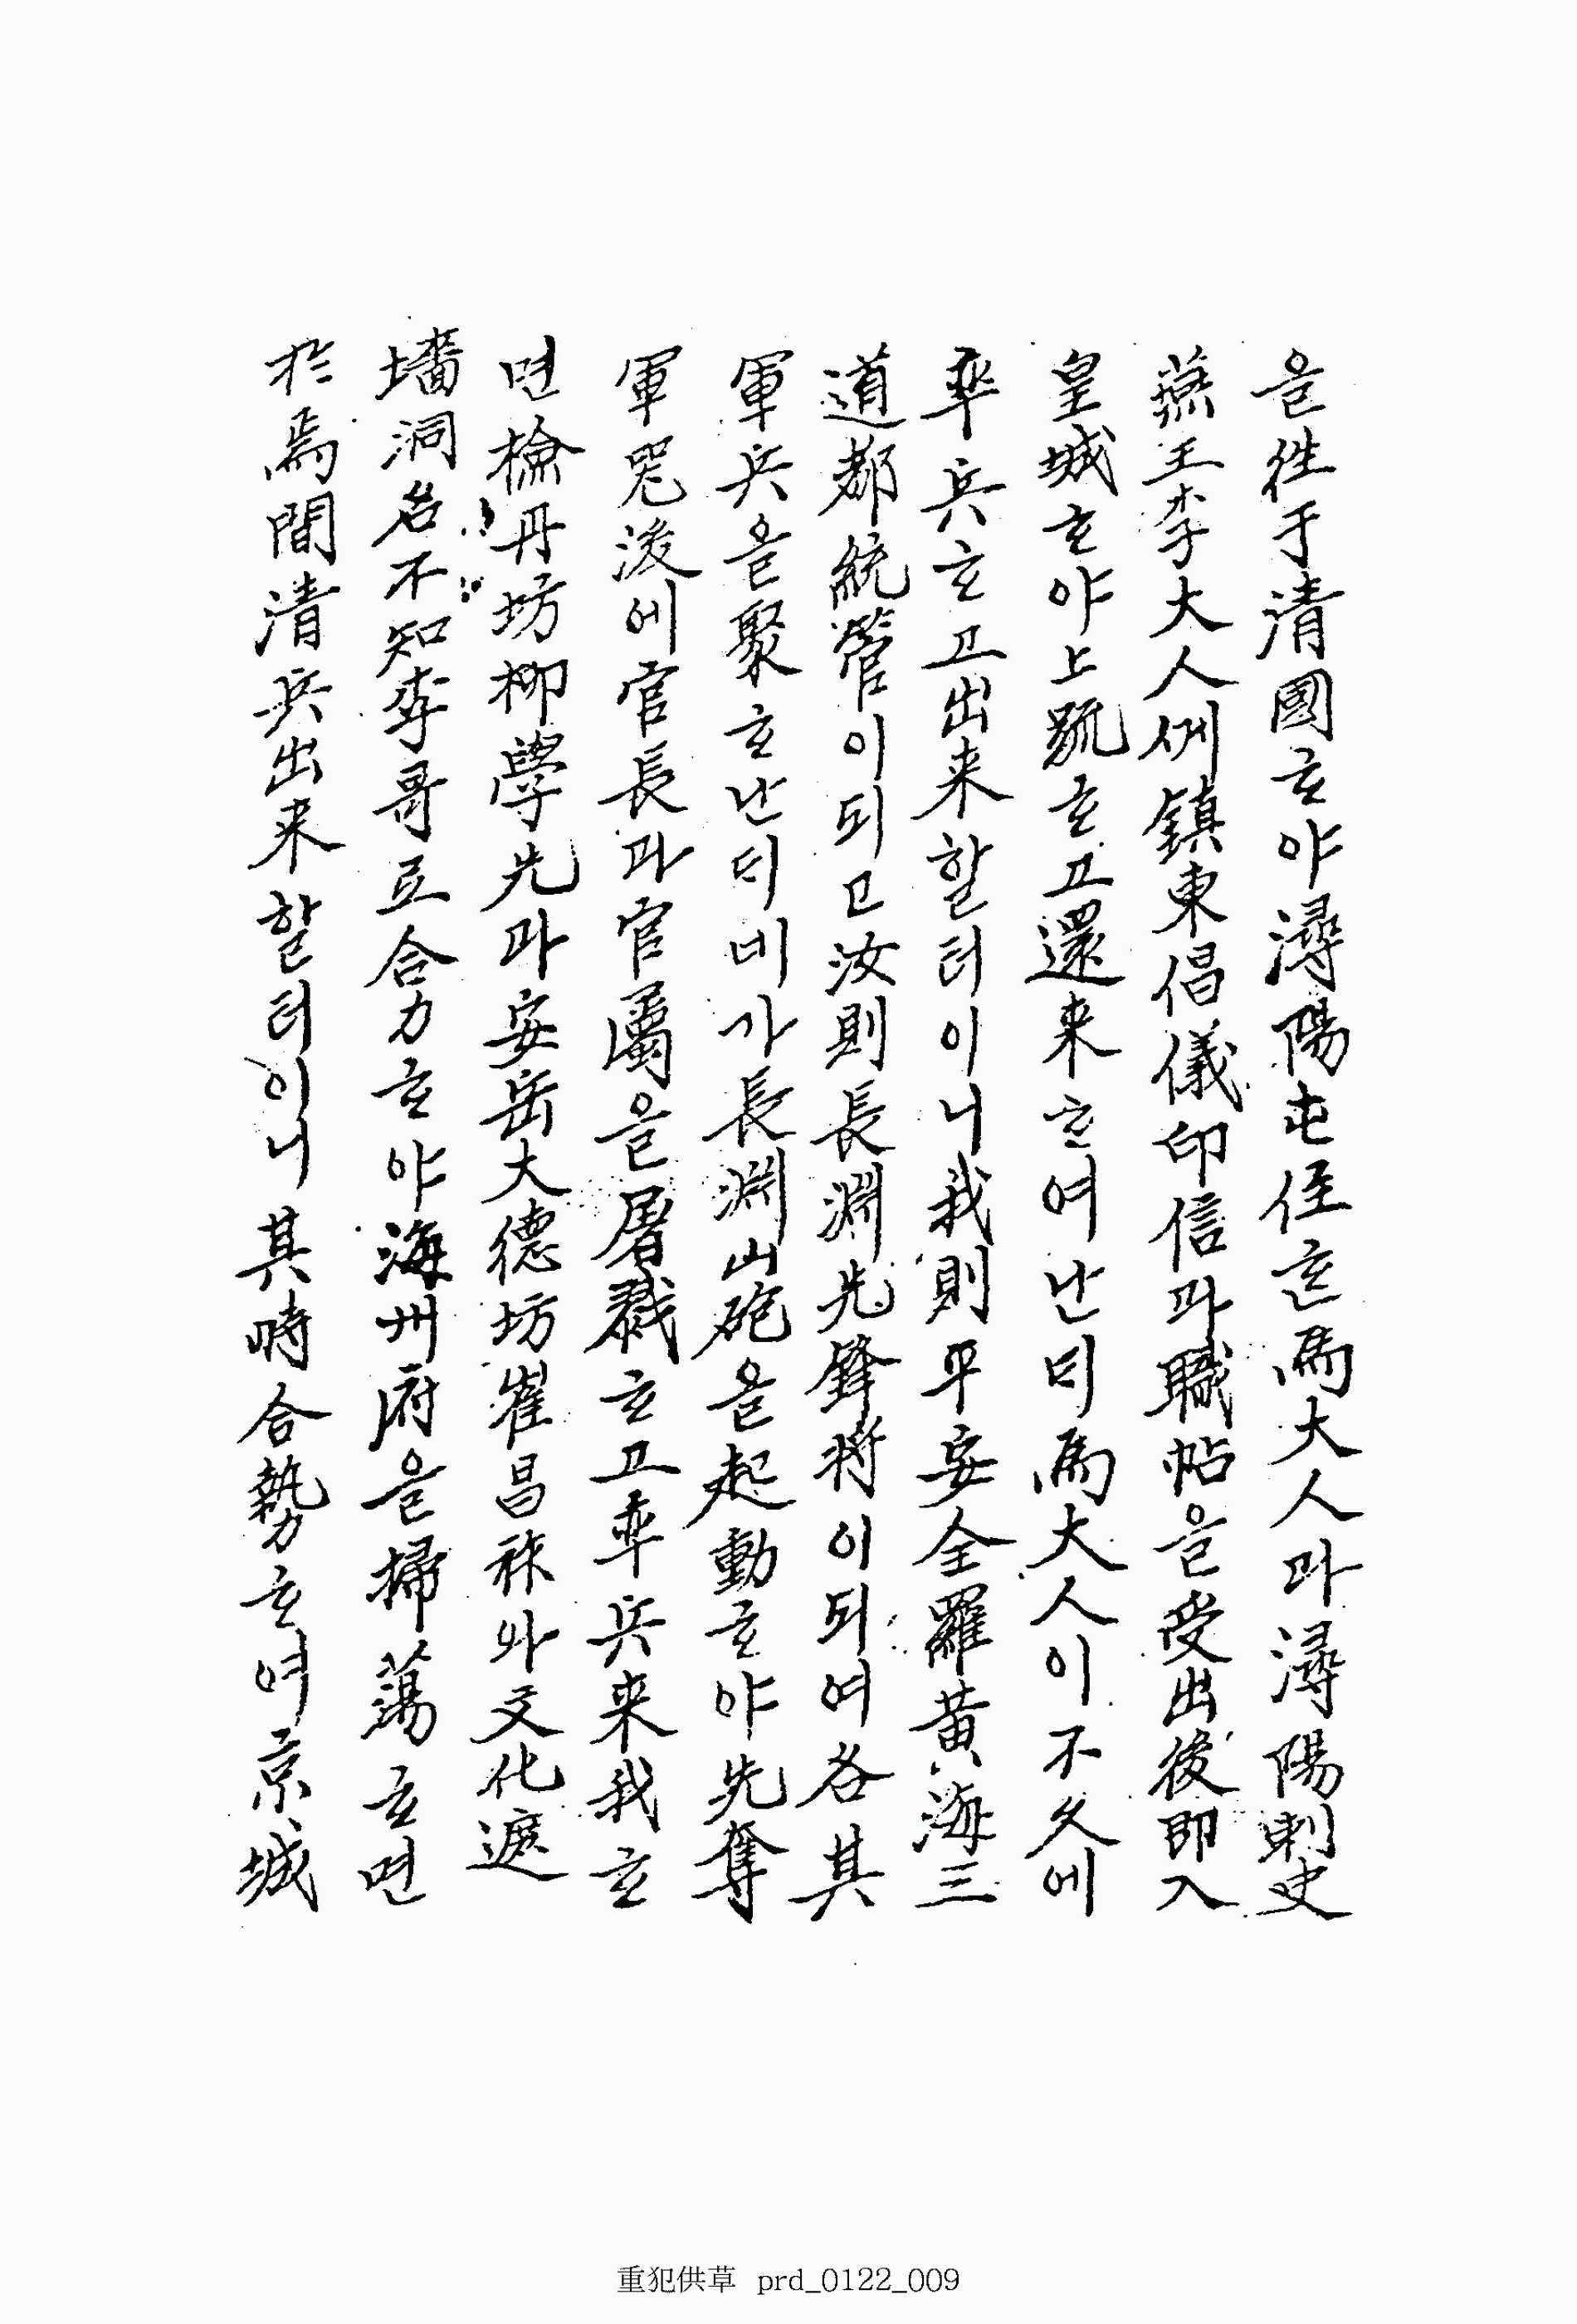 을往于淸國ᄒᆞ야潯陽屯侄ᄒᆞᆫ馬大人과潯陽刺史
燕王李大人例鎭東倡儀印信과職帖을受出後卽入
皇城ᄒᆞ야上號ᄒᆞ고還来ᄒᆞ여난ᄃᆡ馬大人이不久에
率兵ᄒᆞ고出来할터이니我則平安全羅黃海三
道都統管이되고汝則長淵先鋒將이되여各其
軍兵을聚ᄒᆞ난ᄃᆡ비가長淵山砲을起動ᄒᆞ야先奪
軍器後에官長과官屬을屠戮ᄒᆞ고率兵来我ᄒᆞ
면檢丹坊柳學先과安岳大德坊崔昌祚와文化遮
墻洞名不知李哥亙合力ᄒᆞ야海州府을掃蕩ᄒᆞ면
於焉間淸兵出来할터이니其時合勢ᄒᆞ여京城
重犯供草 prd_0122_009